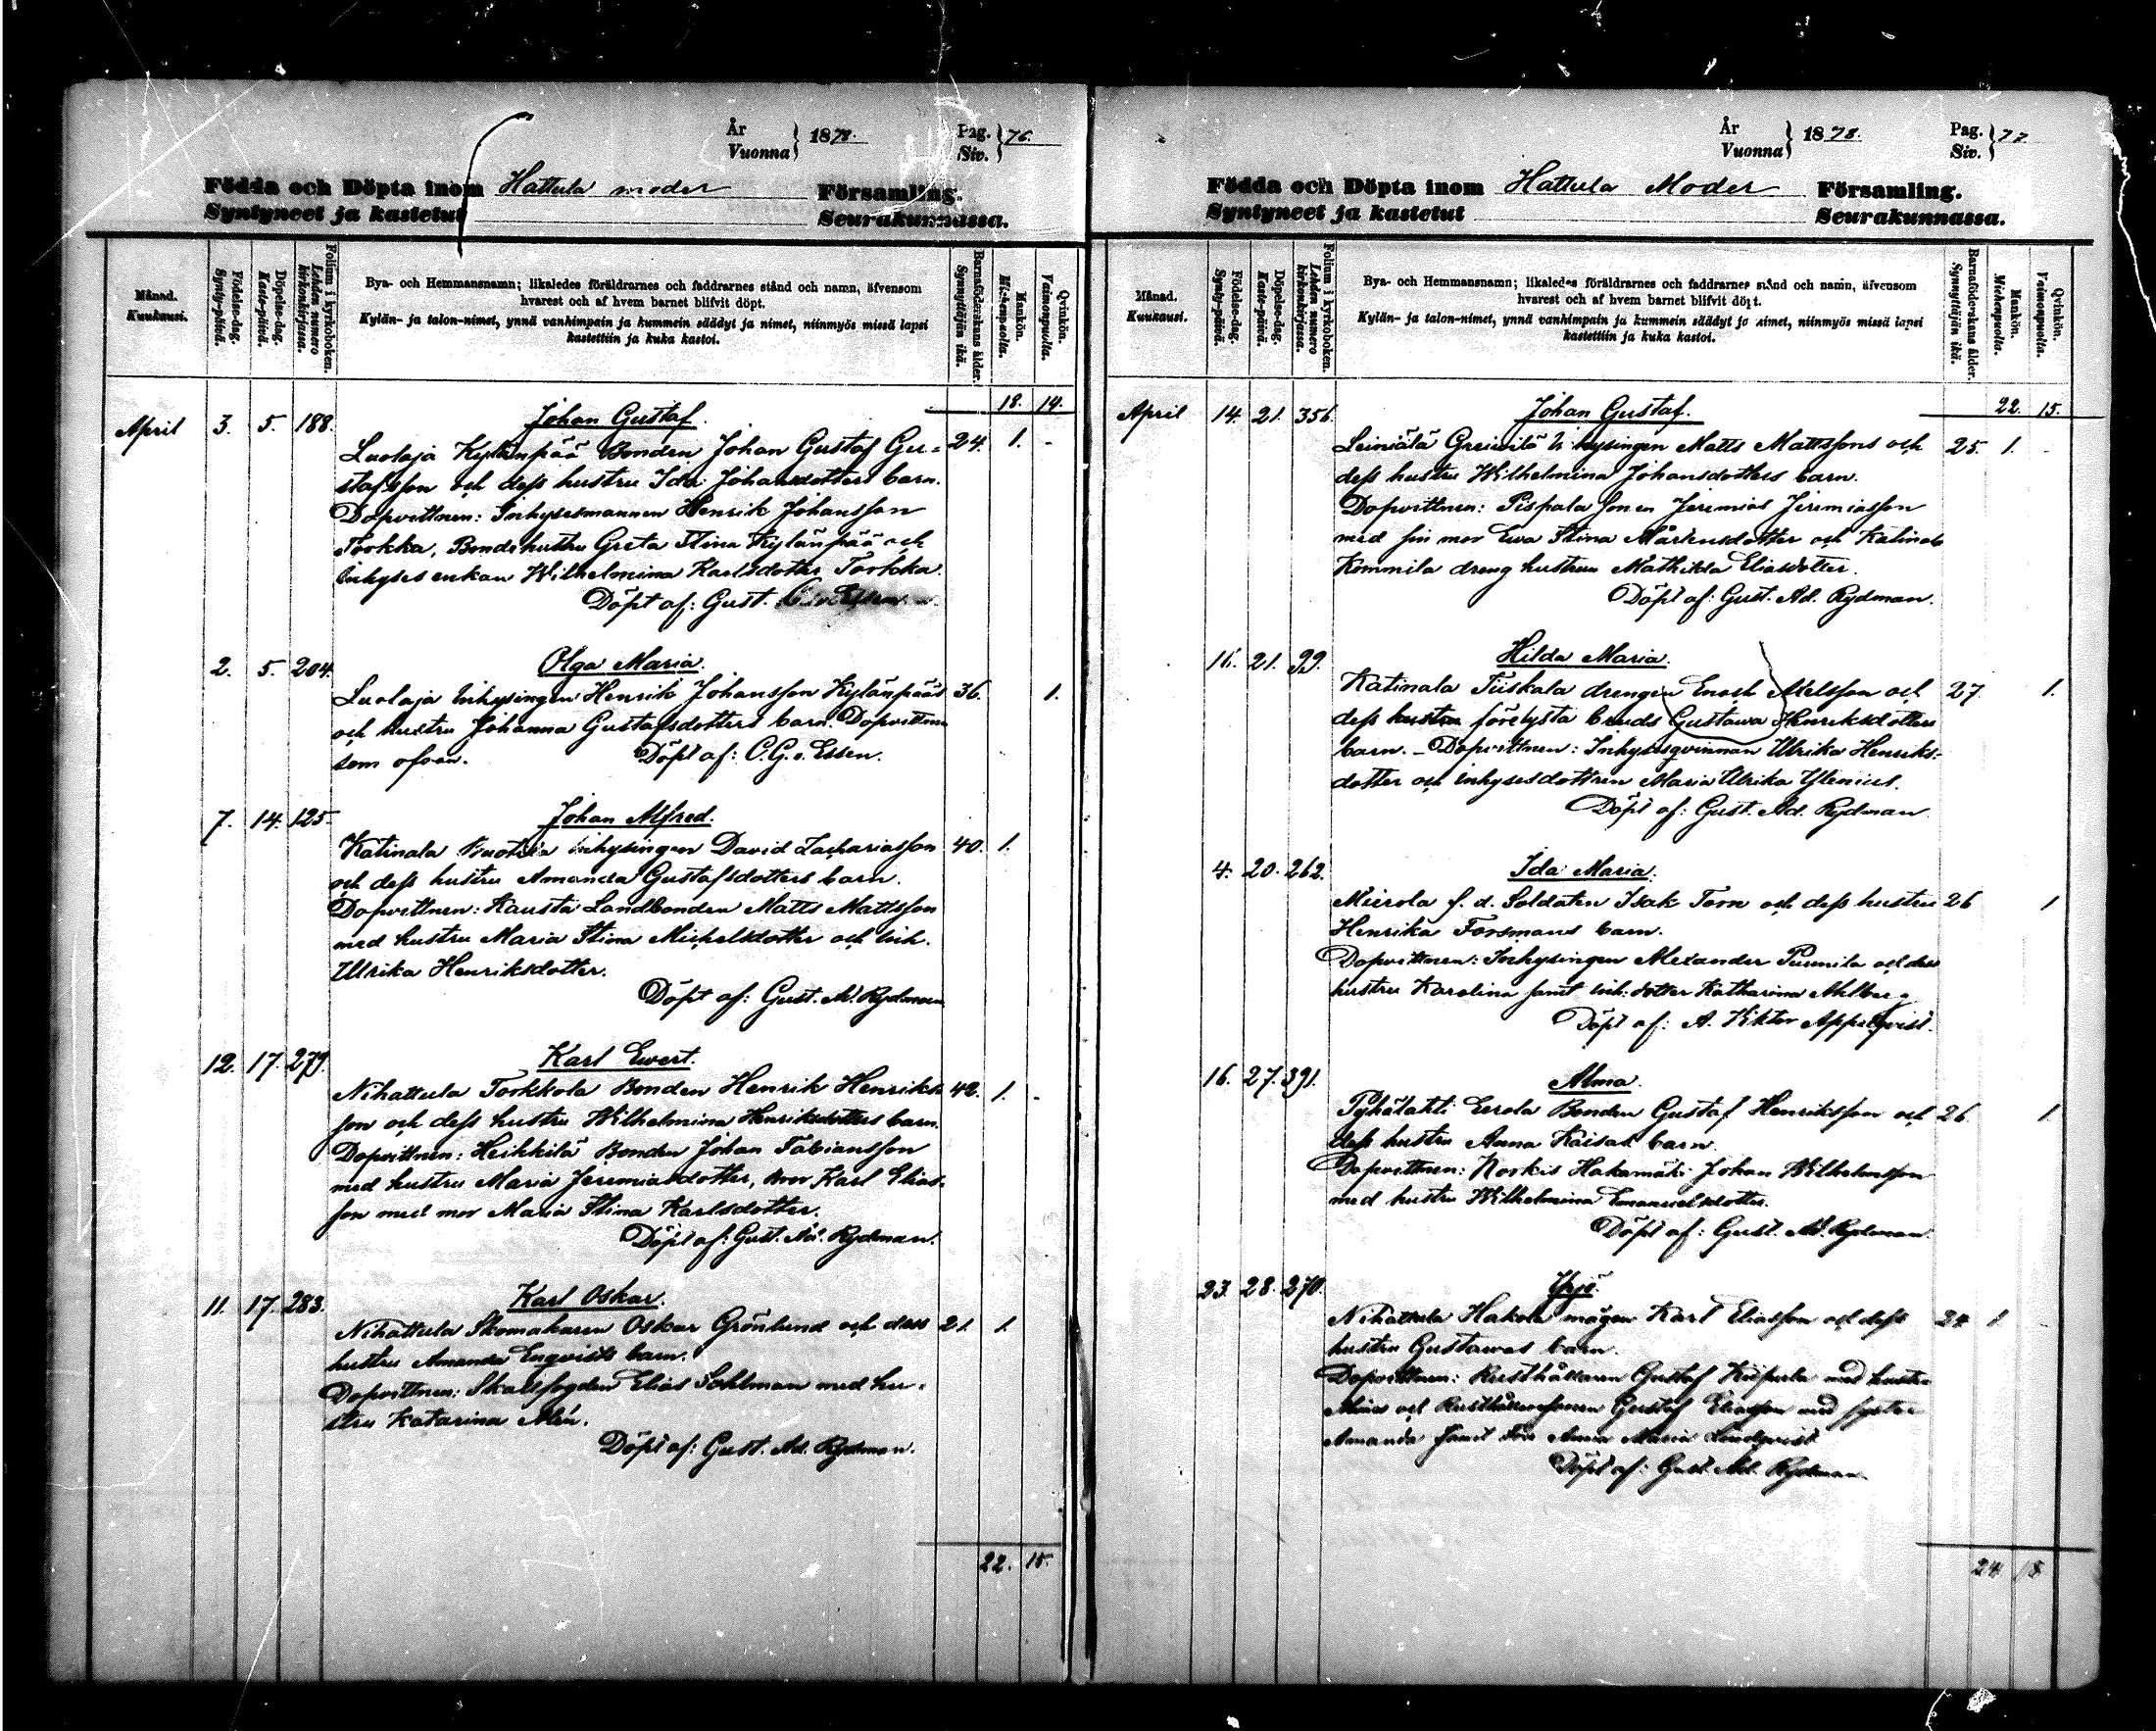 År
Vuonna } 1878. Pag.
Siv. } 76.
Födda och Döpta inom Hattula moder Församling.
Syntyneet ja kastetut Seurakunnassa.
Månad.
Kuukausi.
Födelse-dag.
Synty-päivä.
Döpelse-dag.
Kaste-päivä.
Folium i kyrkoboken.
Lehden numero
kirkonkirjassa.
Bya- och Hemmansnamn; likaledes föräldrarnes och faddrarnes stånd och namn, äfvensom
hvarest och af hvem barnet blifvit döpt.
Kylän- ja talon-nimet, ynnä vanhimpain ja kummein säädyt ja nimet, niinmyös missä lapsi
kastettiin ja kuka kastoi.
Barnaföderskans ålder.
Synnyttäjän ikä.
Mankön.
Miehenpuolta.
Qvinkön.
Vaimonpuolta.
18. 14.
April 3. 5. 188. Johan Gustaf.
Luolaja Kylänpää Bonden Johan Gustaf Gu= 24. 1. -
stafsson och dess hustru Ida Johansdotters barn.
Dopvittnen: Inhysesmannen Henrik Johansson
Torkka, Bondehustru Greta Stina Kylänpää och
inhyses enkan Wilhelmina Karlsdotter Torkka.
Döpt af: Gust.
2. 5. 204. Olga Maria.
Luolaja Inhysingen Henrik Johansson Kylänpääs 36. 1.
och hustru Johanna Gustafsdotters barn. Dopvittnen
som ofvan. Döpt af: C. G. v. Essen.
7. 14. 125. Johan Alfred.
Katinala inhysingen David Zachariasson 40. 1.
och dess hustru Amanda Gustafsdotters barn.
Dopvittnen: Kausta Landbonden Matts Mattsson
med hustru Maria Stina Michelsdotter och inh.
Ulrika Henriksdotter.
Döpt af: Gust. Ad. Rydman
12. 17. 279. Karl Ewert.
Nihattula Torkkola Bonden Henrik Henriks 42. 1. -
son och dess hustru Wilhelmina Henriksdotters barn.
Dopvittnen: Heikkilä Bonden Johan Fabiansson
med hustru Maria Jeremiasdotter, Karl Elias-
son med mor Maria Stina Karlsdotter.
Döpt af: Gust. Ad. Rydman.
11. 17. 283. Karl Oskar.
Nihattula Skomakaren Oskar Grönlund och dess 21. 1.
hustru Amanda Enqvists barn.
Dopvittnen: Skallfogden Elias Sahlman med hu-
stru Katarina Alén.
Döpt af: Gust. Ad. Rydman.
22. 15.
År
Vuonna } 1878. Pag.
Siv. } 77
Födda och Döpta inom Hattula Moder Församling.
Syntyneet ja kastetut Seurakunnassa.
Månad.
Kuukausi.
Födelse-dag.
Synty-päivä.
Döpelse-dag.
Kaste-päivä.
Folium i kyrkoboken.
Lehden numero
kirkonkirjassa.
Bya- och Hemmansnamn; likaledes föräldrarnes och faddrarnes stånd och namn, äfvensom
hvarest och af hvem barnet blifvit döpt.
Kylän- ja talon-nimet, ynnä vanhimpain ja kummein säädyt ja nimet, niinmyös missä lapsi
kastettiin ja kuka kastoi.
Barnaföderskans ålder.
Synnyttäjän ikä.
Mankön.
Miehenpuolta.
Qvinkön.
Vaimonpuolta.
22. 15.
April 14. 21. 356. Johan Gustaf.
Leiniälä Greivilä hysingen Matts Mattssons och 25. 1. -
dess hustru Wilhelmina Johansdotters barn.
Dopvittnen: Pispala sonen Jeremias Jeremiasson
med sin mor Ewa Stina Mårtensdotter och Katinala
Kommila dreng hustrun Mathilda Eliasdotter.
Döpt af: Gust. Ad. Rydman.
16. 21. 99. Hilda Maria.
Katinala Tiiskala drengen Enoch Axelsson och 27. 1.
dess hustru förelysta bruds Gustawa Henriksdotters
barn. - Dopvittnen: Inhysesqvinnan Ulrika Henriks=
dotter och inhysesdottren Maria Ulrika Ylenius.
Döpt af: Gust. Ad. Rydman.
4. 20. 262. Ida Maria.
Mierola f. d. Soldaten Isak Torn och dess hustru 26 1
Henrika Forsmans barn.
Dopvittnen: Inhysingen Alexander Punnila och dess
hustru Karolina samt inh. dotter Katharina Ahlberg
Döpt af: A. Viktor Appelqvist.
16. 27. 391. Alma.
Pyhälahti Eerola Bonden Gustaf Henriksson och 26. 1
dess hustru Anna Kaisas barn.
Dopvittnen: Norkis Hakamäki Johan Wilhelmsson
med hustru Wilhelmina Emanuelsdotter.
Döpt af: Gust. Ad. Rydman
23. 28. 270. Yrjö.
Nihattula Hakola mågen Karl Eliasson och dess 24 1
hustru Gustawas barn.
Dopvittnen: Rusthållaren Gustaf Kiipula med hustru
och Rusthållaresonen Gustaf Eliasson med syster
Amanda samt Anna Maria Lindqvist
Döpt af: Gust. Ad. Rydman
24 18